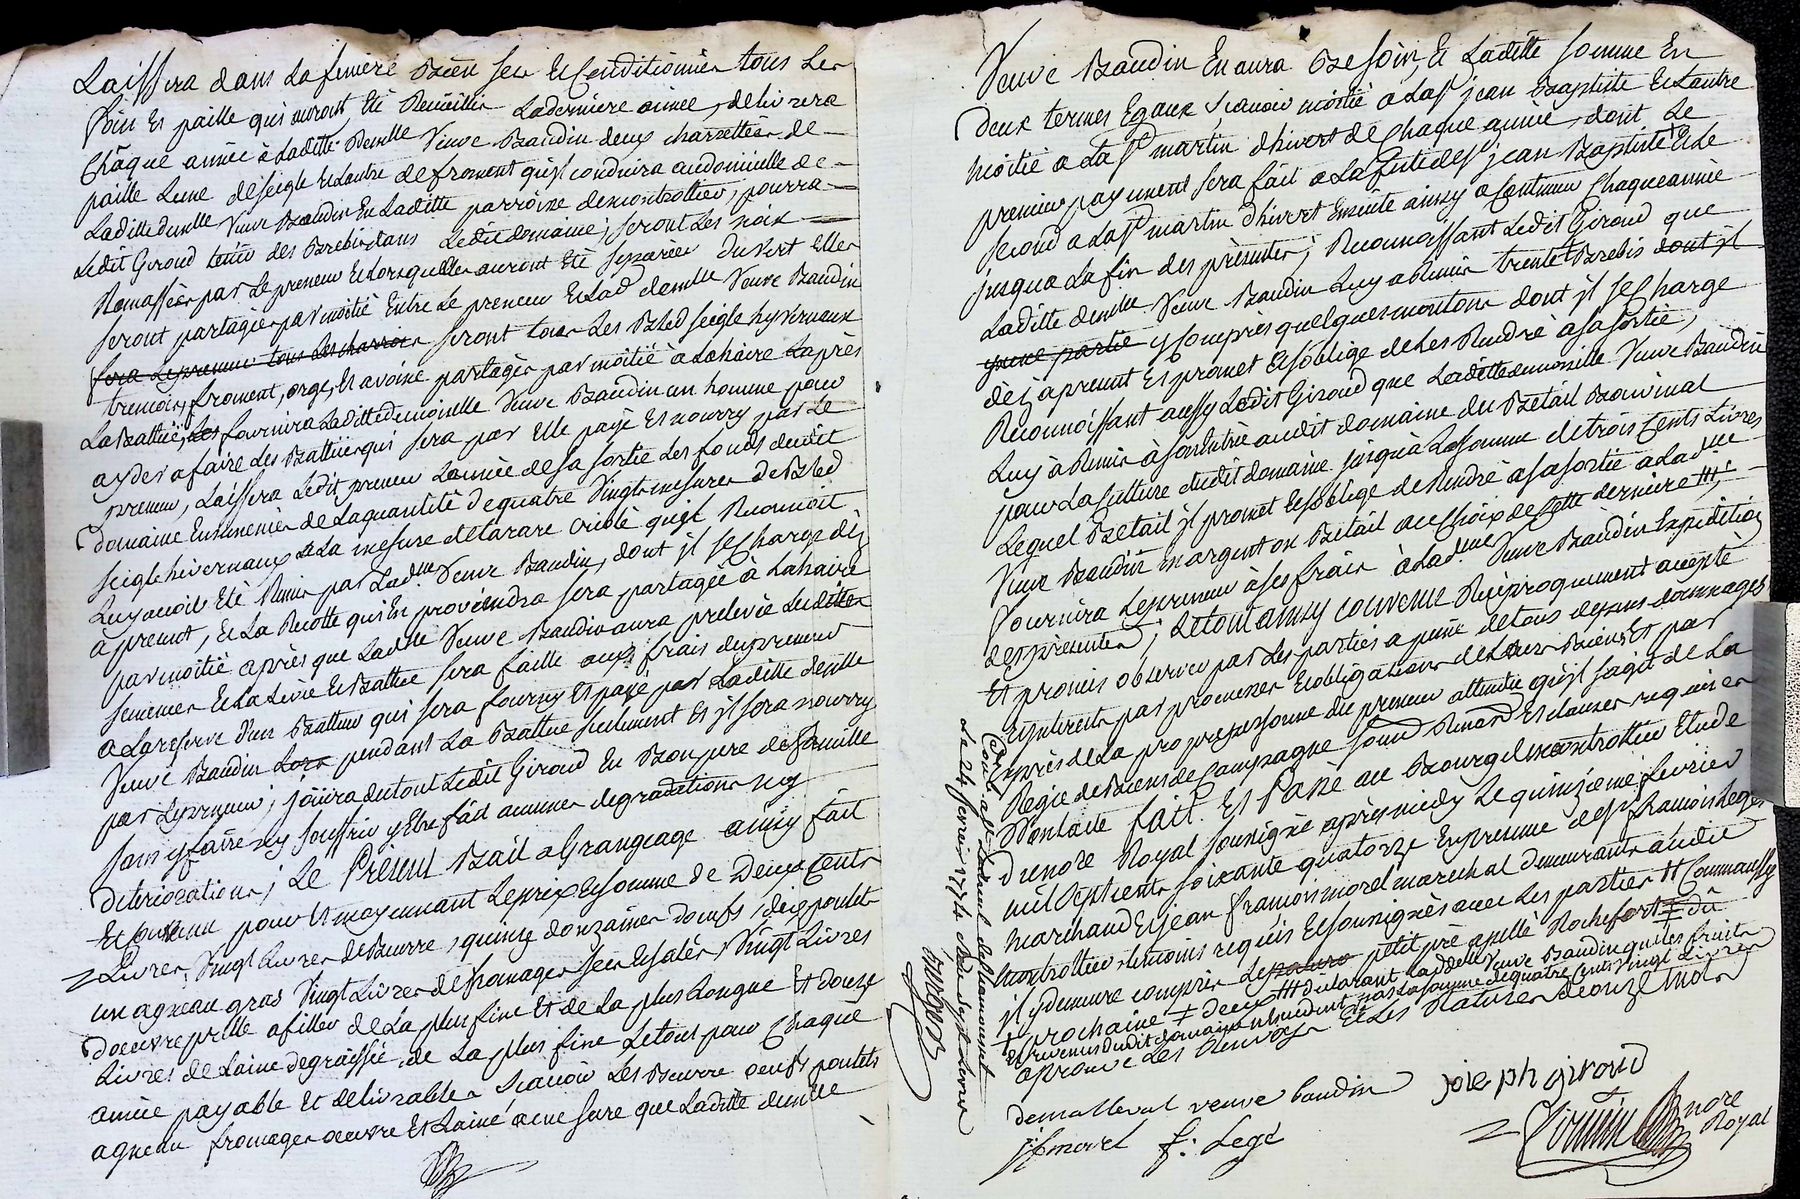 Laissera dans la feniere bien sec et conditionnés tous les
foin et paille qui auront été recüeillis la derniere année, delivrera
châque année à laditte demlle veuve Baudin deux charrettées de
paille l'une de seigle et l'autre de froment qu'il conduira au domicille de
laditte demlle veuve Baudin en laditte parroisse de montrottier, pourra
ledit Giroud tenir des brebis dans ledit domaine; seront les noix
ramassées par le preneur et lorsquelles auront été separées du vert elles
seront partagées par moitié entre le preneur et lad demlle veuve Baudin
fera le preneur tous les charrois seront tous les bled seigle hyvernaux
tremois, froment, orge, et avoine partagés par moitié à lahaire après
la battüe, les fournira laditte demoiselle veuve Baudin un homme pour
ayder a faire les battües qui sera par elle payé et nourry par le
preneur, laissera ledit preneur l'année de sa sortie les fonds dudit
domaine ensemencés de la quantité de quatre vingt mesures de bled
seigle hivernaux à la mesure de tarare criblé qu'il reconnoit
luy avoir été remis par lad lle veuve Baudin, dont il se charge dès
à present, et la recolte qui en proviendra sera partagée à lahaire
par moitié après que lad lle veuve Baudin aura prelevée les dittes
semences et la levée et battüe sera faitte aux frais du preneur
a la reserve d'un batteur qui sera fourny et payé par laditte demlle
veuve Baudin lors pendant la battüe seulement et il sera nourry
par le preneur; joüira du tout ledit Giroud en bon pere de famille
sans y faire ny souffrir y être fait aucunes degradations ny
deteriorations; le present bail a Grangeage ainsy fait
et convenu pour et moyennant le prix et somme de deux cents
livres, vingt livres de beurre, quinze douzaines d'oeufs, dix poulets
un agneau gras vingt livres de fromages secs et salés, vingt livres
d'oeuvre prille a filler de la plus fine et de la plus longue et douze
livres de laine degraissée de la plus fine, le tout pour chaque
année payable et delivrables scavoir les beurre oeufs poulets
agneau fromages oeuvre et laine a mesure que laditte demlle
veuve Baudin en aura besoin, et laditte somme en
deux termes egaux scavoir moitié a la st jean Baptiste et l'autre
moitié a la st martin d'hivert de chaque année, dont le
premier payement sera fait a la fête de st jean Baptiste et le
second a la st martin d'hivert ensuite ainsy a continuer chaque année
jusqua la fin des présentes; reconnoissant ledit Giroud que
laditte demlle veuve Baudin luy a remis trente brebis dont il
y une partie y compris quelques moutons dont il se charge
dès apresent et promet et s'oblige de les rendre a sa sortie,
reconnoissant aussy ledit Giroud que laditte demoiselle veuve Baudin
luy à remis à son entrée audit domaine du betail bouvinal
pour la culture dudit domaine jusqu'à la somme de trois cents livres
lequel betail il promet et s'oblige de rendre a sa sortie a lad lle
veuve Baudin en argent ou betail au choix de cette derniere ;
fournira le preneur à ses frais à lad. lle veuve Baudin expedition
des présentes; le tout ainsy convenu reciproquement accepté
et promis observer par les parties a peine de tous depens dommages
interets par promesses et obligations de leurs biens et par
exprès de la propre personne du preneur attendu qu'il s'agit de la
regie de biens de campagne soumis renonce et clauses requises
dont acte fait et passé au bourg de montrottier etude
du nore royal soussigné après midy le quinzieme fevrier
mil sept cents soixante quatorze en presence de sr francois Legé
marchand et jean francois morel marechal demeurants audit
montrottier temoins requis et soussignés avec les parties Comme aussy
il y demeure compris le petit pré apellé Rochefort ‡ du
‡ prochaine ‡ deux declarant laditte veuve Baudin que les fruits
et revenus dudit domaine n'excedent pas la somme de quatre cents vingt livres
aprouve les renvoys et les ratures de onze mots
demalleval veuve baudin joseph giroud
jf morel f: Legé
nore
Royal
Le 24 fevrier 1774